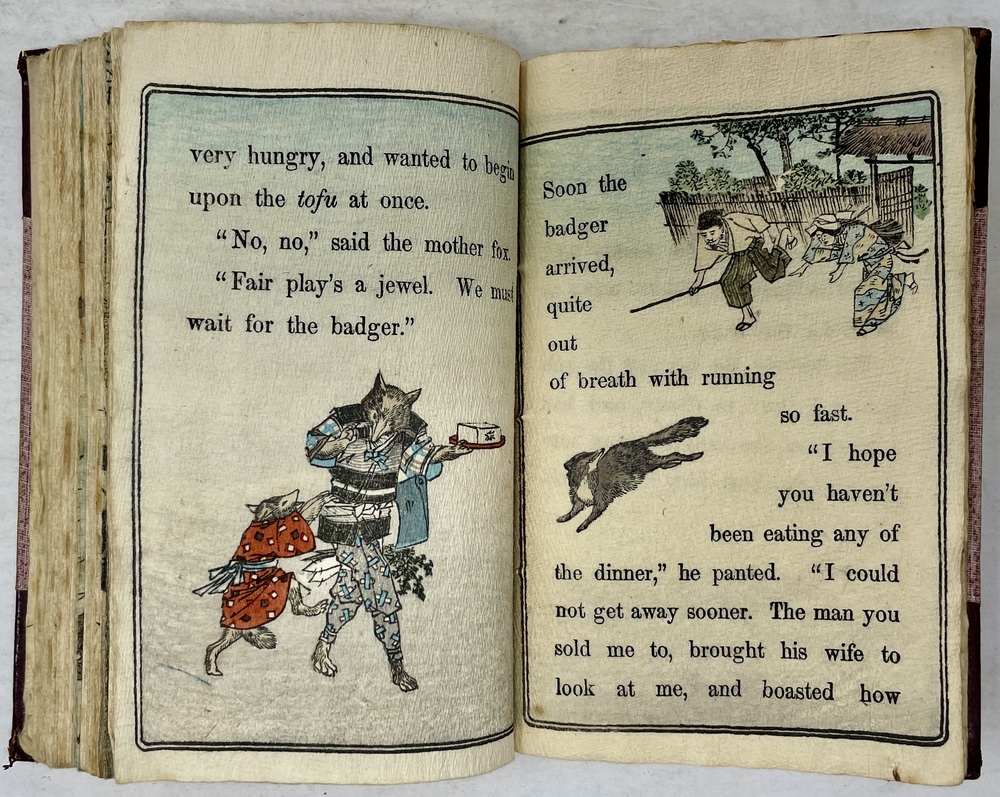 very hungry, and wanted to begin
upon the tofu at once.
“No, no,” said the mother fox.
“Fair play’s a jewel. We must
wait for the badger.”
Soon the
badger
arrived,
quite
out
of breath with running
so fast.
“I hope
you haven’t
been eating any of
the dinner,” he panted. “I could
not get away sooner. The man you
sold me to, brought his wife to
look at me, and boasted how